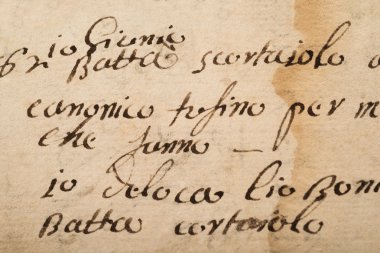 io Gionio
Batta scortaiolo a
canonico tofino per m
che fanno —
io deloca lio Boni
Batta cortaiolo